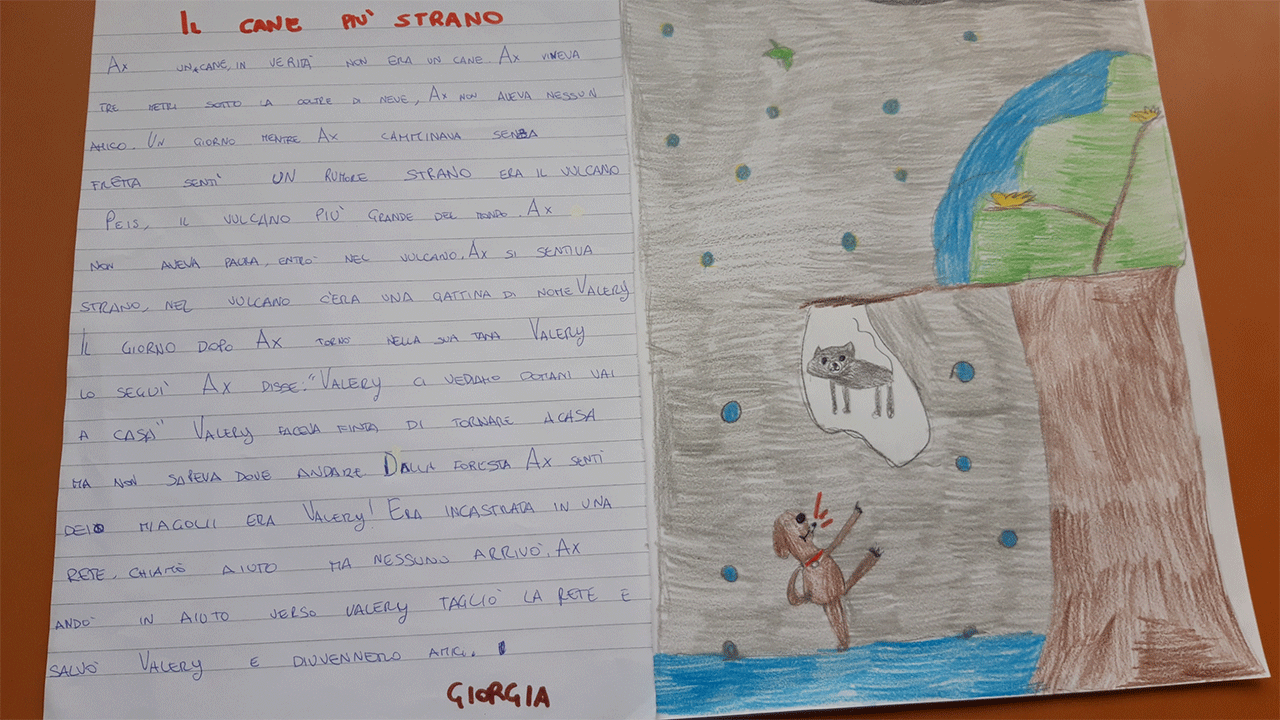 IL CANE PIÙ STRANO
AX UN CANE, IN VERITÀ NON ERA UN CANE. AX VIVEVA
TRE METRI SOTTO LA COLTRE DI NEVE, AX NON AVEVA NESSUN
AMICO. UN GIORNO MENTRE AX CAMMINAVA SENZA
FRETTA SENTÌ UN RUMORE STRANO ERA IL VULCANO
PEIS, IL VULCANO PIÙ GRANDE DEL MONDO. AX
NON AVEVA PAURA, ENTRÒ NEL VULCANO. AX SI SENTIVA
STRANO, NEL VULCANO C'ERA UNA GATTINA DI NOME VALERY
IL GIORNO DOPO AX TORNÒ NELLA SUA TANA VALERY
LO SEGUÌ AX DISSE: "VALERY CI VEDIAMO DOMANI VAI
A CASA" VALERY FACEVA FINTA DI TORNARE A CASA
MA NON SAPEVA DOVE ANDARE DALLA FORESTA AX SENTÌ
DEI MIAGOLII ERA VALERY! ERA INCASTRATA IN UNA
RETE, CHIAMÒ AIUTO MA NESSUNO ARRIVÒ. AX
ANDÒ IN AIUTO VERSO VALERY TAGLIÒ LA RETE E
SALVÒ VALERY E DIVENNERO AMICI.
GIORGIA